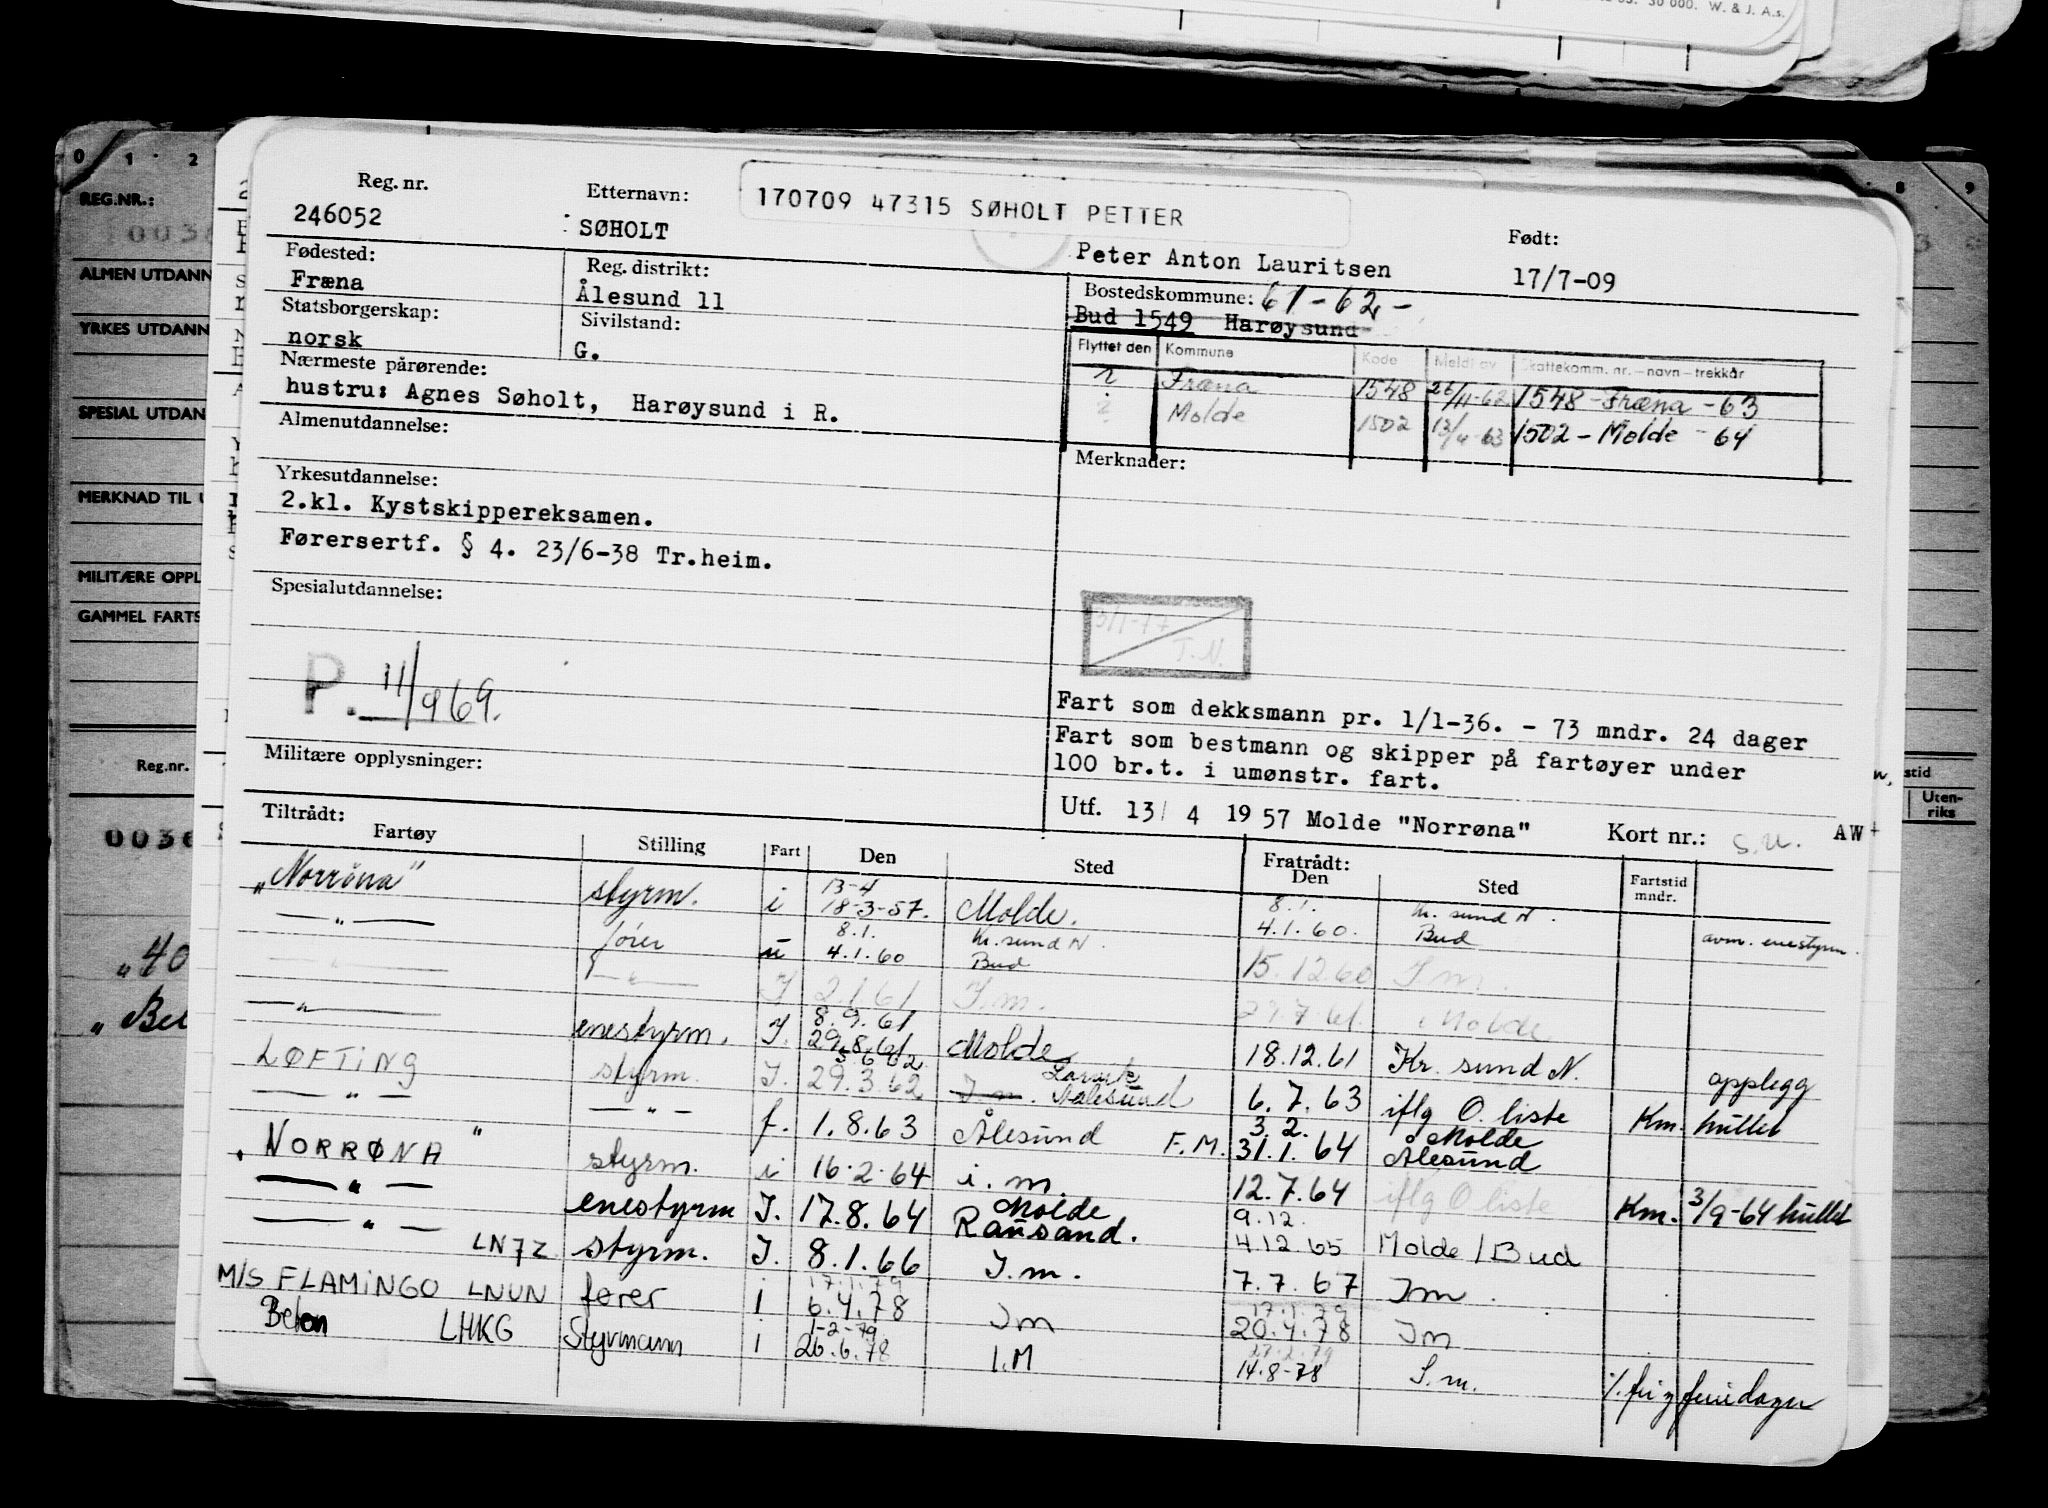 30 000. W. & J. A.s.
0 1 2
8 9
REG.NR.:
ALMEN UTDANN
YRKES UTDANN
SPESIAL UTDAN
MERKNAD TIL U
MILITÆRE OPPL
GAMMEL FARTS
Reg.nr.
0036
„Be
stid
Uten-
riks
Reg. nr.
246052
Etternavn:
SØHOLT
170709 47315 SØHOLT PETTER
Peter Anton Lauritsen
Født:
17/7-09
Fødested:
Fræna
Reg. distrikt:
Ålesund 11
Bostedskommune: 61-62-
Bud 1549 Harøysund
Statsborgerskap:
norsk
Sivilstand:
G.
Flyttet den Kommune Kode Meldt av Skattekomm. nr. – navn – trekkår
1 Fræna 1548 26/11-62 1548 - Fræna - 63
2 Molde 1502 13/4-63 1502 - Molde - 64
Nærmeste pårørende:
hustru: Agnes Søholt, Harøysund i R.
Almenutdannelse:
Merknader:
Yrkesutdannelse:
2.kl. Kystskippereksamen.
Førersertf. § 4. 23/6-38 Tr.heim.
Spesialutdannelse:
3/1-77
T.N.
P. 11/969.
Fart som dekksmann pr. 1/1-36. - 73 mndr. 24 dager
Fart som bestmann og skipper på fartøyer under
100 br.t. i umønstr. fart.
Militære opplysninger:
Utf. 13/ 4 1957 Molde "Norrøna" Kort nr.: S.U. AW+
Tiltrådt:
Fartøy Stilling Fart Den Sted Fratrådt: Den Sted Fartstid mndr.
13-4 8.1. Kr. sund N.
„Norrøna" styrm. i 18-3-57. Molde. 4.1.60. Bud avm. enestyrm.
8.1. Kr. sund N.
—„— fører u 4.1.60 Bud 15.12.60 I.m.
—„— —„— I 2.1.61 I.m. 29.7.61 Molde
8.9.61
—„— enestyrm. I. 29.8.61 Molde 18.12.61 Kr. sund N. opplegg
5.6.62 Larvik
LØFTING styrm. I. 29.3.62 I.m. Aalesund 6.7.63 iflg O. liste Km. hullet
3.2. Molde
—„— —„— f. 1.8.63 Ålesund F.M. 31.1.64 Ålesund
„NORRØNA" styrm. i 16.2.64 i.m 12.7.64 iflg O liste Km. 3/9-64 hullet
Molde 9.12.
—„— enestyrm I. 17.8.64 Rausand. 4.12.65 Molde/Bud
—„— LN7Z styrm. I. 8.1.66 I.m. 7.7.67 Im.
17.1.79 17.1.79
M/S FLAMINGO LNUN fører i 6.4.78 Im 20.4.78 Im
1-2-79 27.2.79
Beton LHKG Styrmann i 26.6.78 I.M 14-8-78 S.m. % fri g feriedager